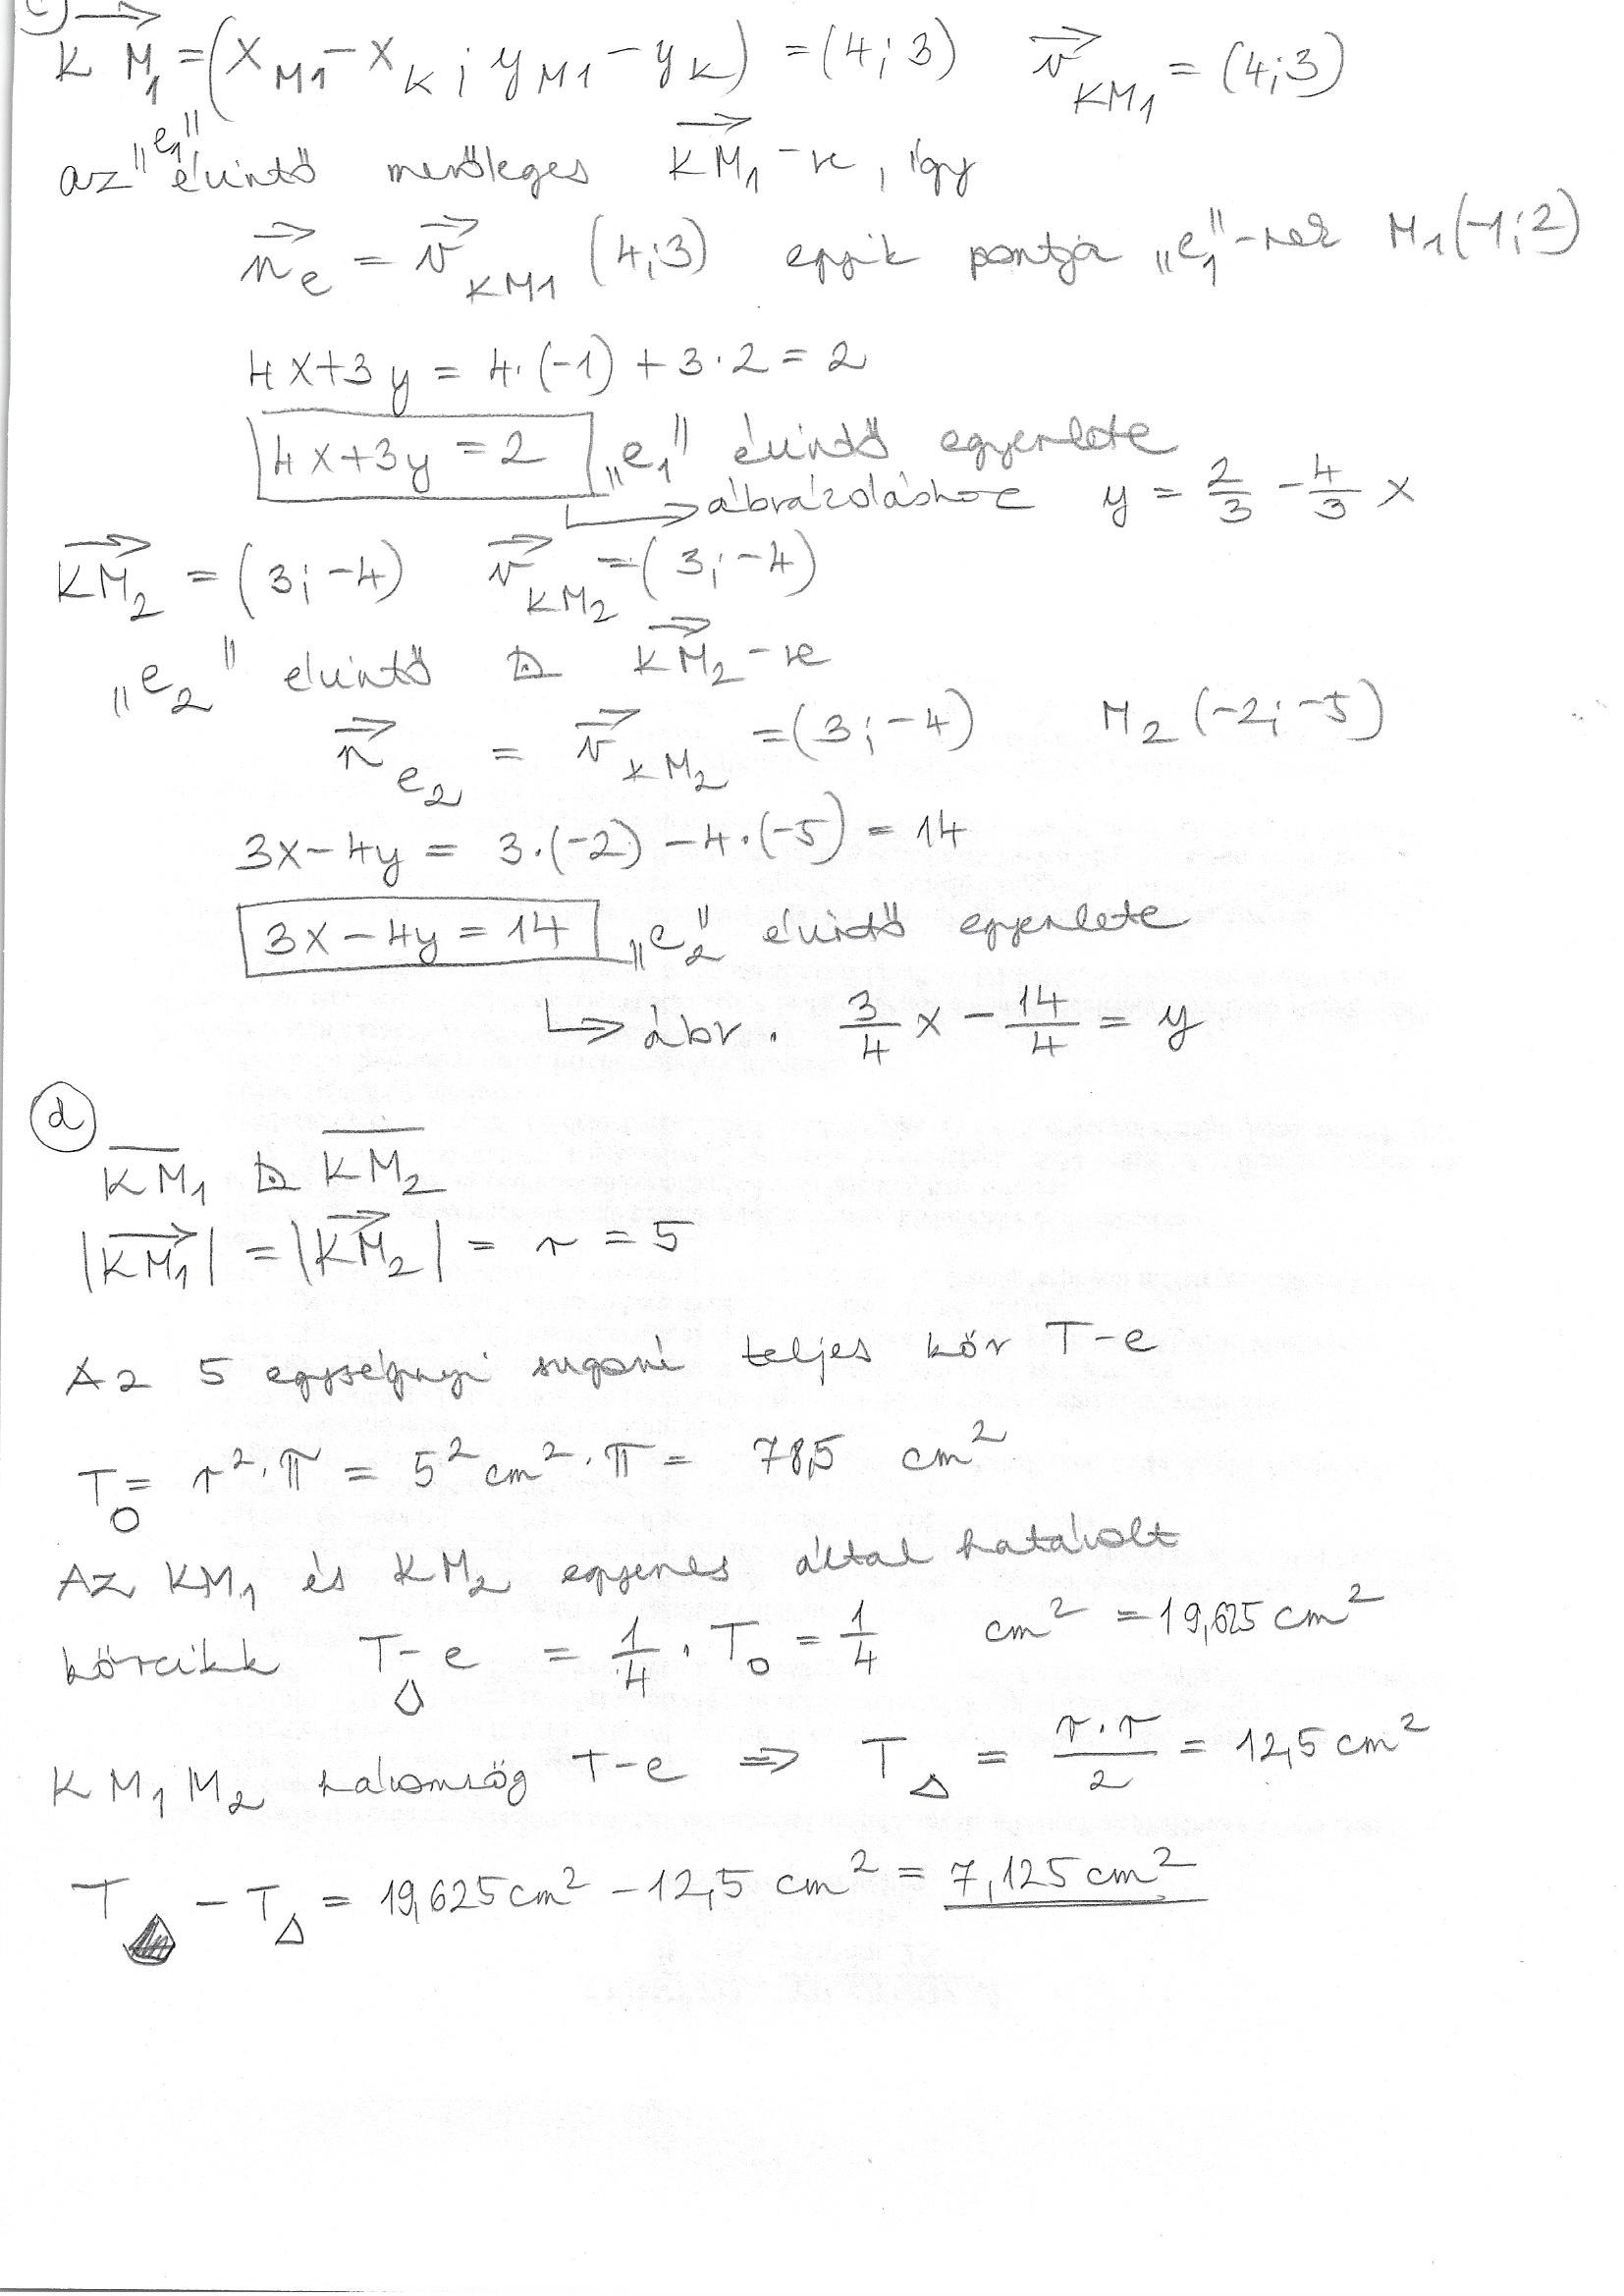 c)
KM₁ = (x_M1 − x_K ; y_M1 − y_K) = (4;3) v_KM1 = (4;3)
az „e₁” érintő merőleges KM₁-re, így
n_e = v_KM1 (4;3) egyik pontja „e₁”-nek M₁(−1;2)
4x+3y = 4·(−1) + 3·2 = 2
4x+3y = 2 „e₁” érintő egyenlete
↳ ábrázoláshoz y = 2/3 − 4/3 x
KM₂ = (3;−4) v_KM2 = (3;−4)
„e₂” érintő ⊾ KM₂-re
n_e2 = v_KM2 = (3;−4) M₂(−2;−5)
3x−4y = 3·(−2) −4·(−5) = 14
3x−4y = 14 „e₂” érintő egyenlete
↳ ábr. 3/4 x − 14/4 = y
d
KM₁ ⊾ KM₂
|KM₁| = |KM₂| = r = 5
Az 5 egységnyi sugarú teljes kör T-e
T_O = r²·π = 5² cm²·π = 78,5 cm²
Az KM₁ és KM₂ egyenes által határolt
körcikk T-e = 1/4 · T_O = 1/4 cm² = 19,625 cm²
KM₁M₂ háromszög T-e ⇒ T_△ = r·r/2 = 12,5 cm²
T − T_△ = 19,625 cm² − 12,5 cm² = 7,125 cm²